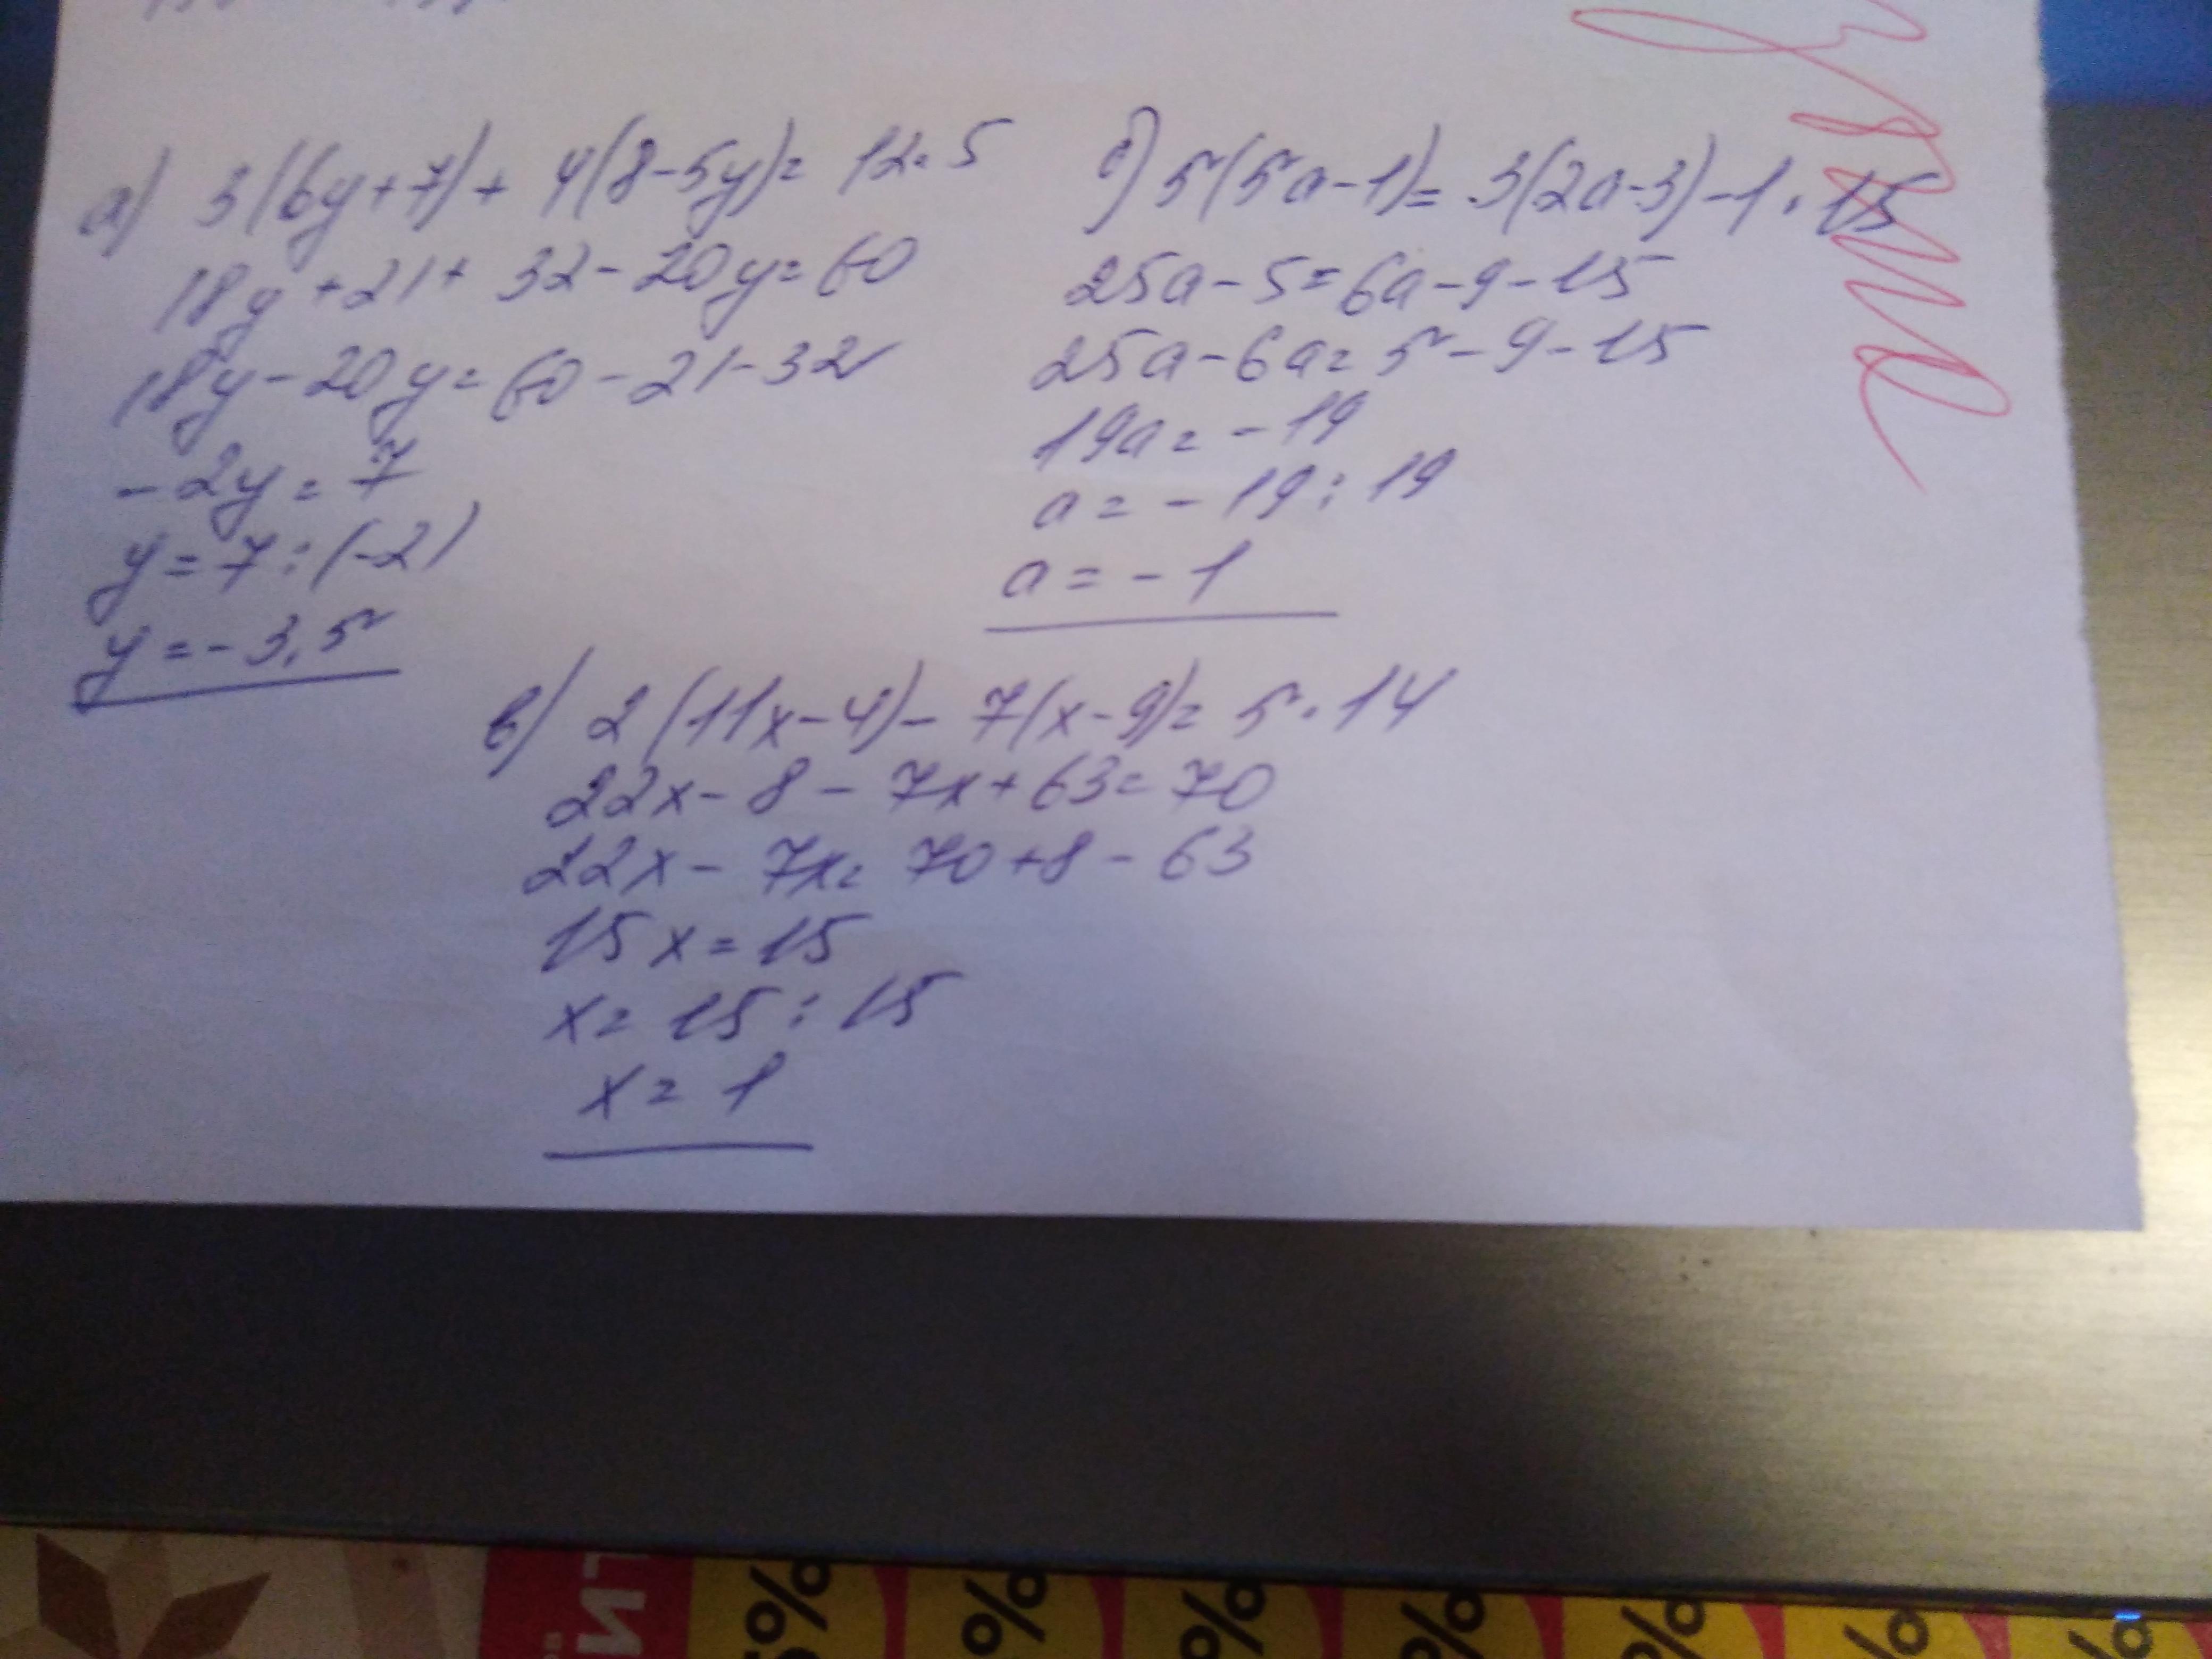 а) 3(6y+7)+ 4(8-5y)= 12·5
18y+21+ 32-20y=60
18y-20y= 60-21-32
-2y = 7
y = 7:(-2)
y =-3,5
б) 5(5a-1)= 3(2a-3)-1·15
25a-5=6a-9-15
25a-6a= 5-9-15
19a= -19
a= -19:19
a= -1
в) 2(11x-4)- 7(x-9)= 5·14
22x-8- 7x+63=70
22x- 7x= 70+8-63
15x=15
x= 15:15
x= 1
% % % % % % %